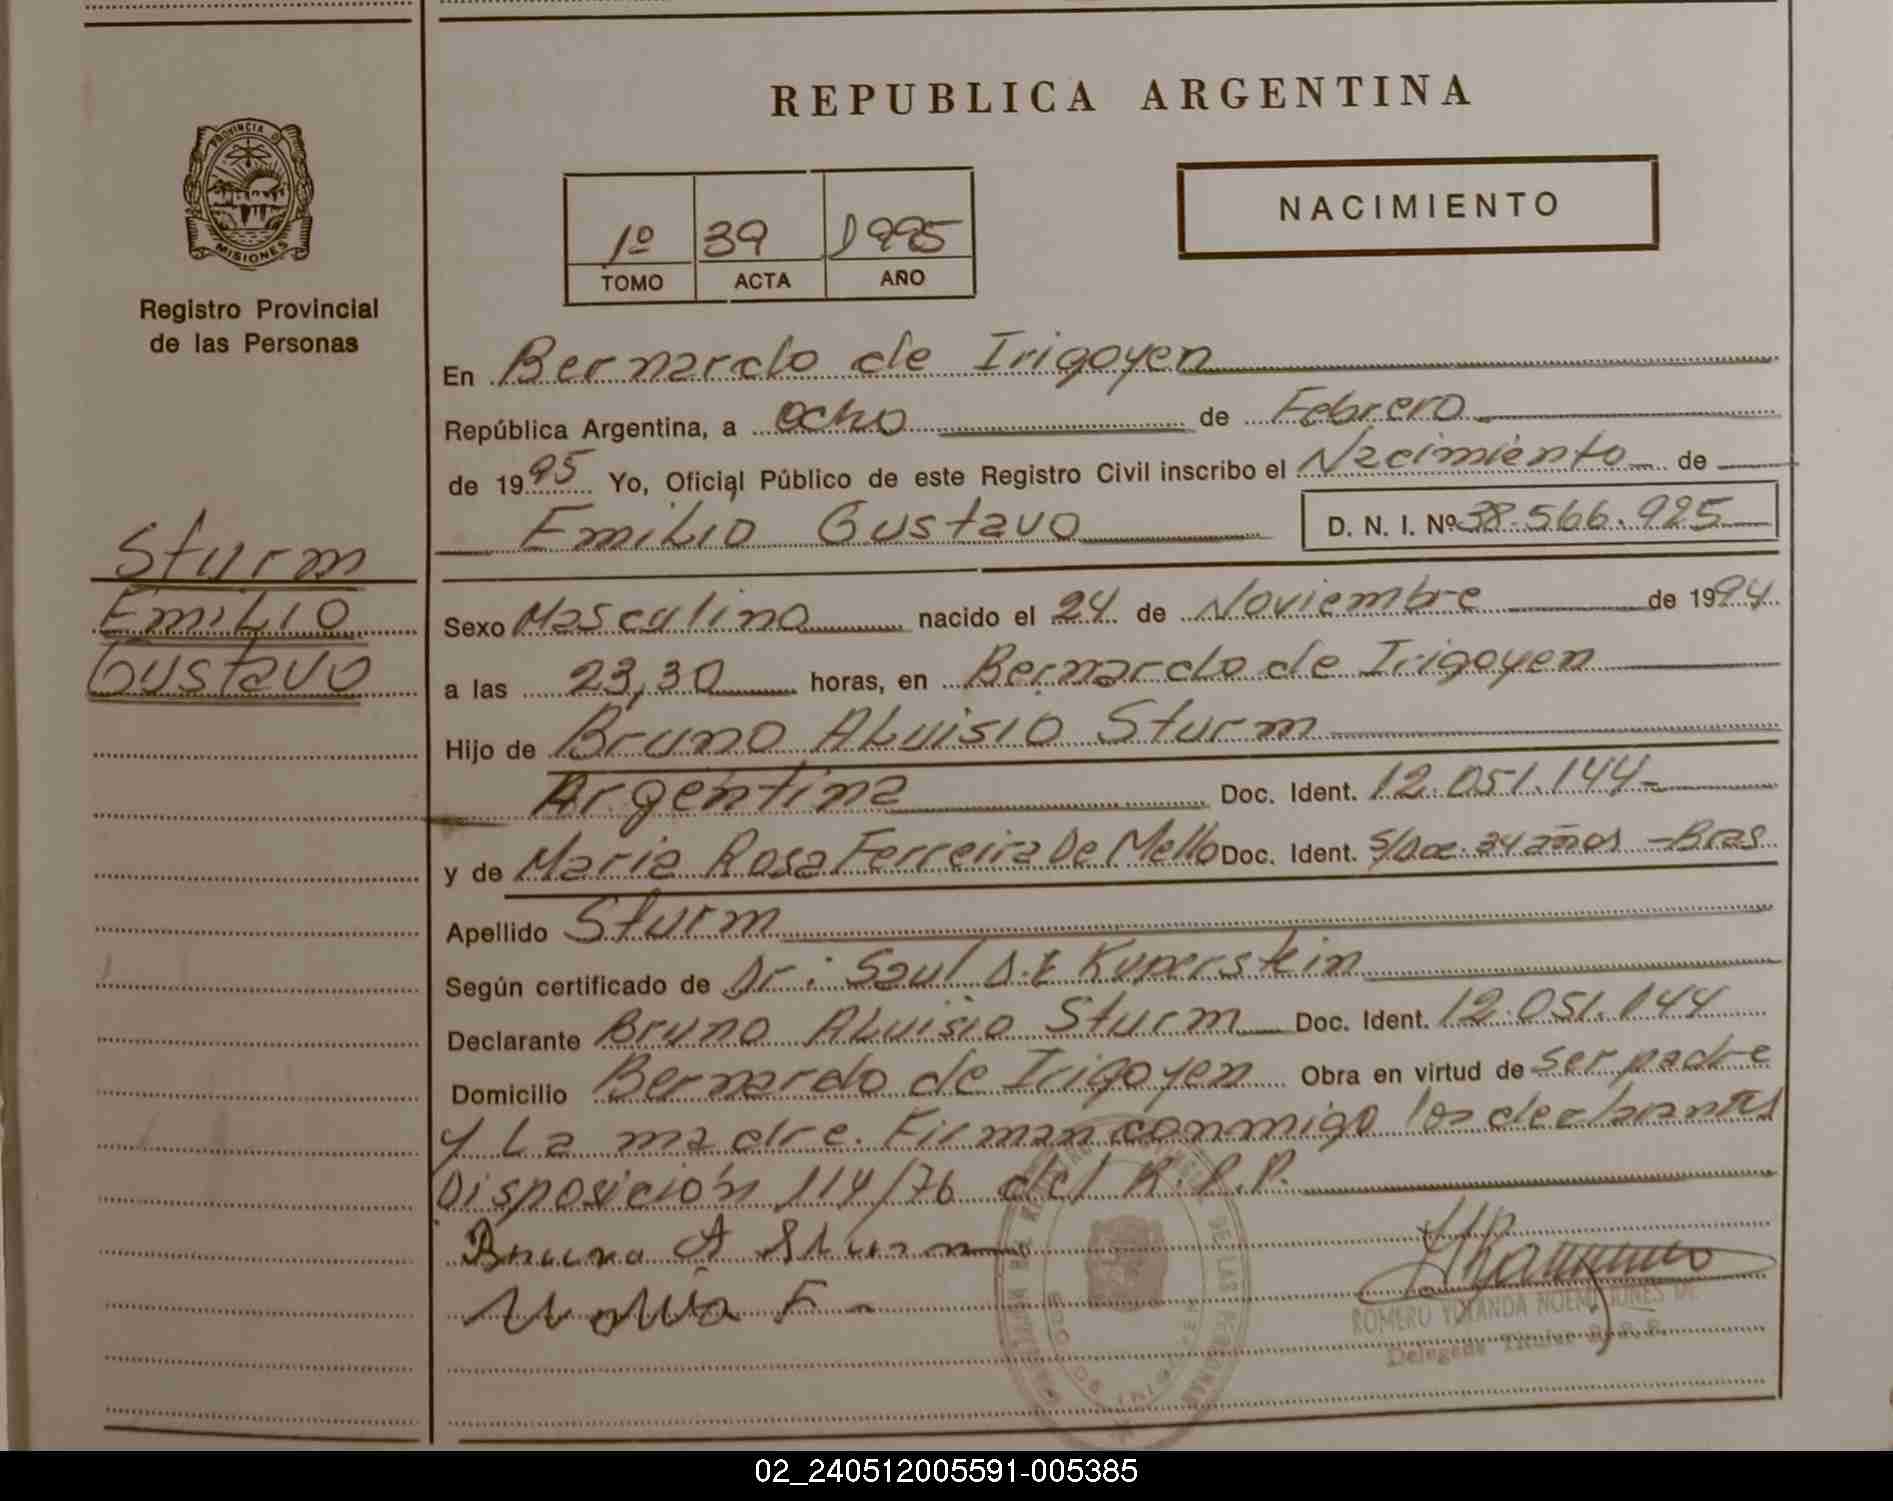 REPUBLICA ARGENTINA
PROVINCIA DE
MISIONES
Registro Provincial
de las Personas
1º 39 1995
TOMO ACTA AÑO
NACIMIENTO
En Bernardo de Irigoyen
República Argentina, a ocho de Febrero
de 1995 Yo, Oficial Público de este Registro Civil inscribo el Nacimiento de
Emilio Gustavo D. N. I. Nº 38.566.925
Sturm
Emilio
Gustavo
Sexo Masculino nacido el 24 de Noviembre de 1994
a las 23,30 horas, en Bernardo de Irigoyen
Hijo de Bruno Aluisio Sturm
Argentina Doc. Ident. 12.051.144
y de Maria Rosa Ferreira De Mello Doc. Ident. S/Doc. 34 años - Bras.
Apellido Sturm
Según certificado de Dr: Saul D.E Kuperstein
Declarante Bruno Aluisio Sturm Doc. Ident. 12.051.144
Domicilio Bernardo de Irigoyen Obra en virtud de ser padre
y La madre. Firman conmigo los declarantes
Disposición 114/76 del R.P.P.
Bruno A Sturm
F -
ROMERO YOLANDA NOEMI DE
Delegada Titular R.P.P.
02_240512005591-005385